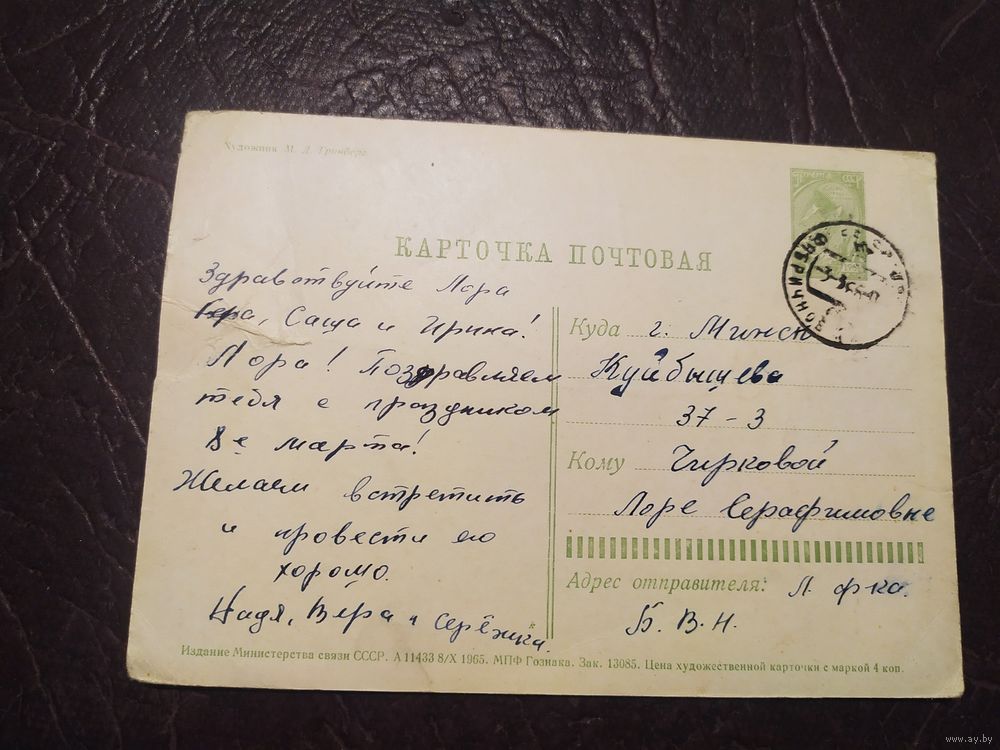 Художник М. Л. Гринберг
ПОЧТА СССР
КАРТОЧКА ПОЧТОВАЯ
Здравствуйте Лора
Гера, Саша и Ирина!
Лора! Поздравляем
тебя с праздником
8е марта!
Желаем встретить
и провести его
хорошо.
Надя, Вера и Серёжка.
Куда г. Минск
Куйбышева
37-3
Кому Чирковой
Лоре Серафимовне
Адрес отправителя: Л. ф-ка.
Б. В. Н.
Издание Министерства связи СССР. А 11433 8/X 1965. МПФ Гознака. Зак. 13085. Цена художественной карточки с маркой 4 коп.
www.ay.by